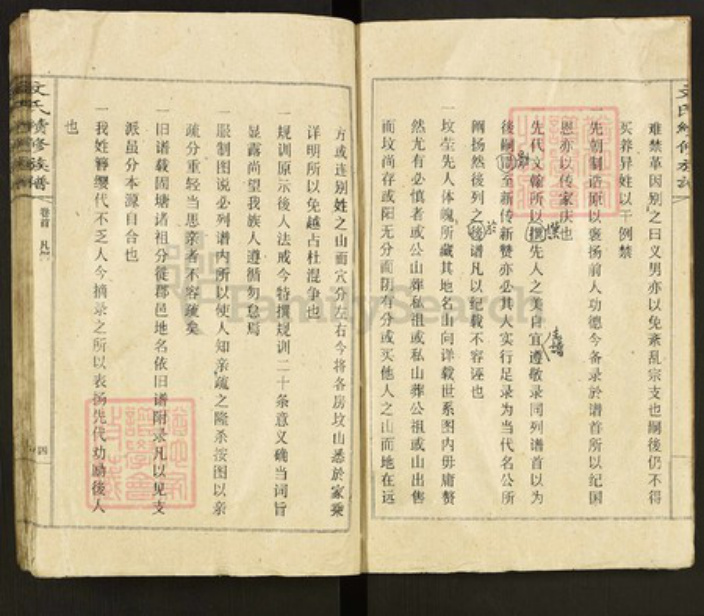 难禁革因别之曰义男亦以免紊乱宗支也嗣後仍不得
买养异姓以干例禁
一先朝制诰所以褒扬前人功德今备录於谱首所以纪国
恩亦以传家庆也
一先代文翰所以撰先人之美自宜遵敬录同列谱首以为
後嗣至新传新赞亦必其人实行足录为当代名公所
阐扬然後列之後谱凡以纪载不容诬也
一坟茔先人体魄所藏其地名山向详载世系图内毋庸赘
然尤有必慎者或公山葬私祖或私山葬公祖或山出售
而坟尚存或阳无分而阴有分或买他人之山而地在远
方或连别姓之山而穴分左右今将各房坟山悉於家乘
详明所以免越占杜混争也
一规训原示後人法戒今特撰规训二十条意义确当词旨
显露尚望我族人遵循勿怠焉
一服制图说必列谱内所以使人知亲疏之隆杀按图以亲
疏分重轻当思亲者不容疏矣
一旧谱载固塘诸祖分徙郡邑地名依旧谱附录凡以见支
派虽分本源自合也
一我姓簪缨代不乏人今摘录之所以表扬先代劝励後人
也
文氏续修族谱
卷首 凡
四
FamilySearch